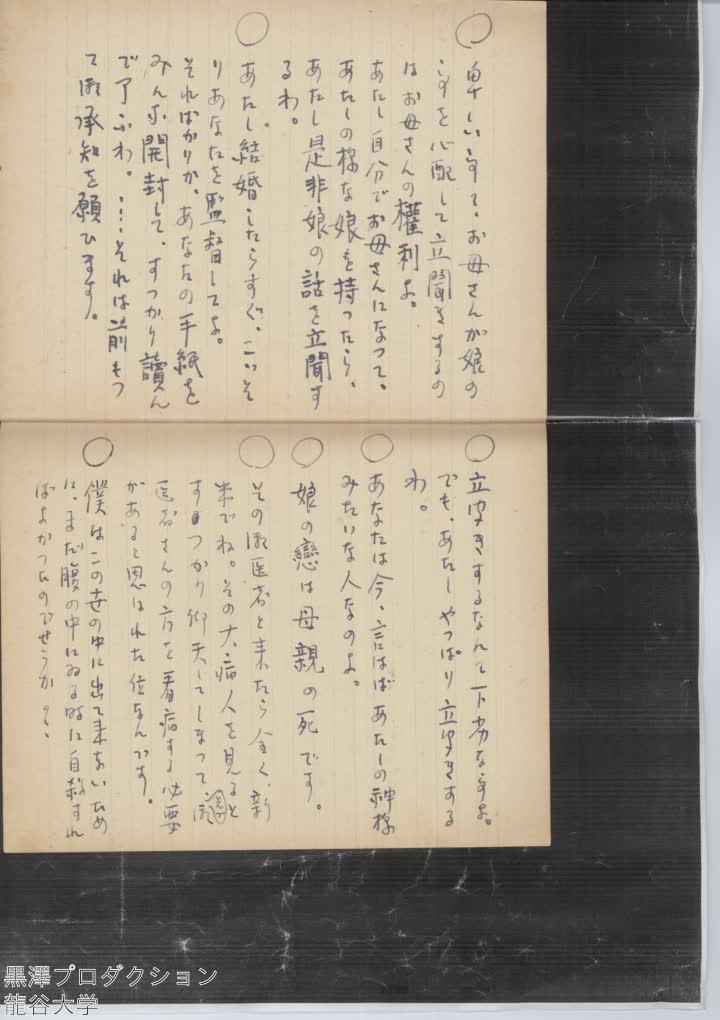 ○ 卑しい事で、お母さんが娘の
事を心配して立聞きするの
はお母さんの權利よ。
あたし自分でお母さんになつて、
あたしの様な娘を持つたら、
あたし是非娘の話を立聞す
るわ。
○ あたし、結婚したらすぐ、こつそ
りあなたを監督してよ。
そればかりか、あなたの手紙を
みんな開封して、すつかり讀ん
で了ふわ。……それは前もつ
て御承知を願ひます。
○ 立聞きするなんて下劣な事よ。
でも、あたしやつぱり立聞きする
わ。
○ あなたは今、言はばあたしの神様
みたいな人なのよ。
○ 娘の戀は母親の死です。
○ その御医者と来たら全く、新
米でね。その大病人を見ると
すつかり仰天してしまつて、
医者さんの方を看病する必要
があると思はれた位なんです。
○ 僕はこの世の中に出て来ないため
に、まだ腹の中にゐる時に自殺すれ
ばよかつたのでせうか
黒澤プロダクション
龍谷大学